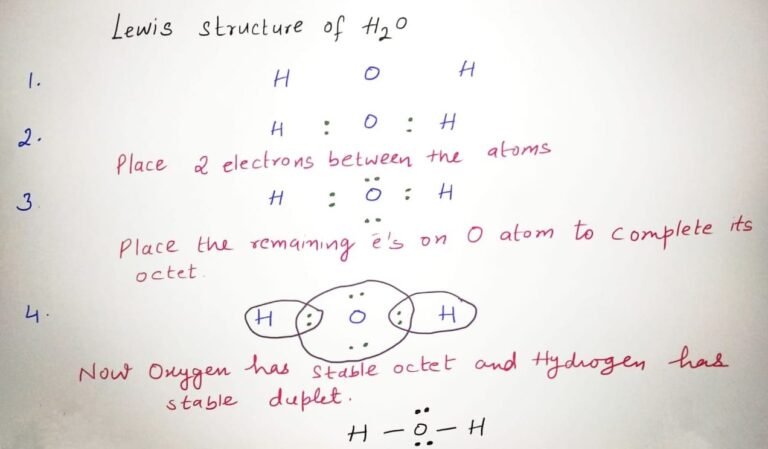 Lewis structure of H₂O
1. H O H
2. H : O : H
Place 2 electrons between the atoms
3 H : O : H
Place the remaining ē's on O atom to complete its
octet.
4. H : O : H
Now Oxygen has stable octet and Hydrogen has
stable duplet.
H – O – H